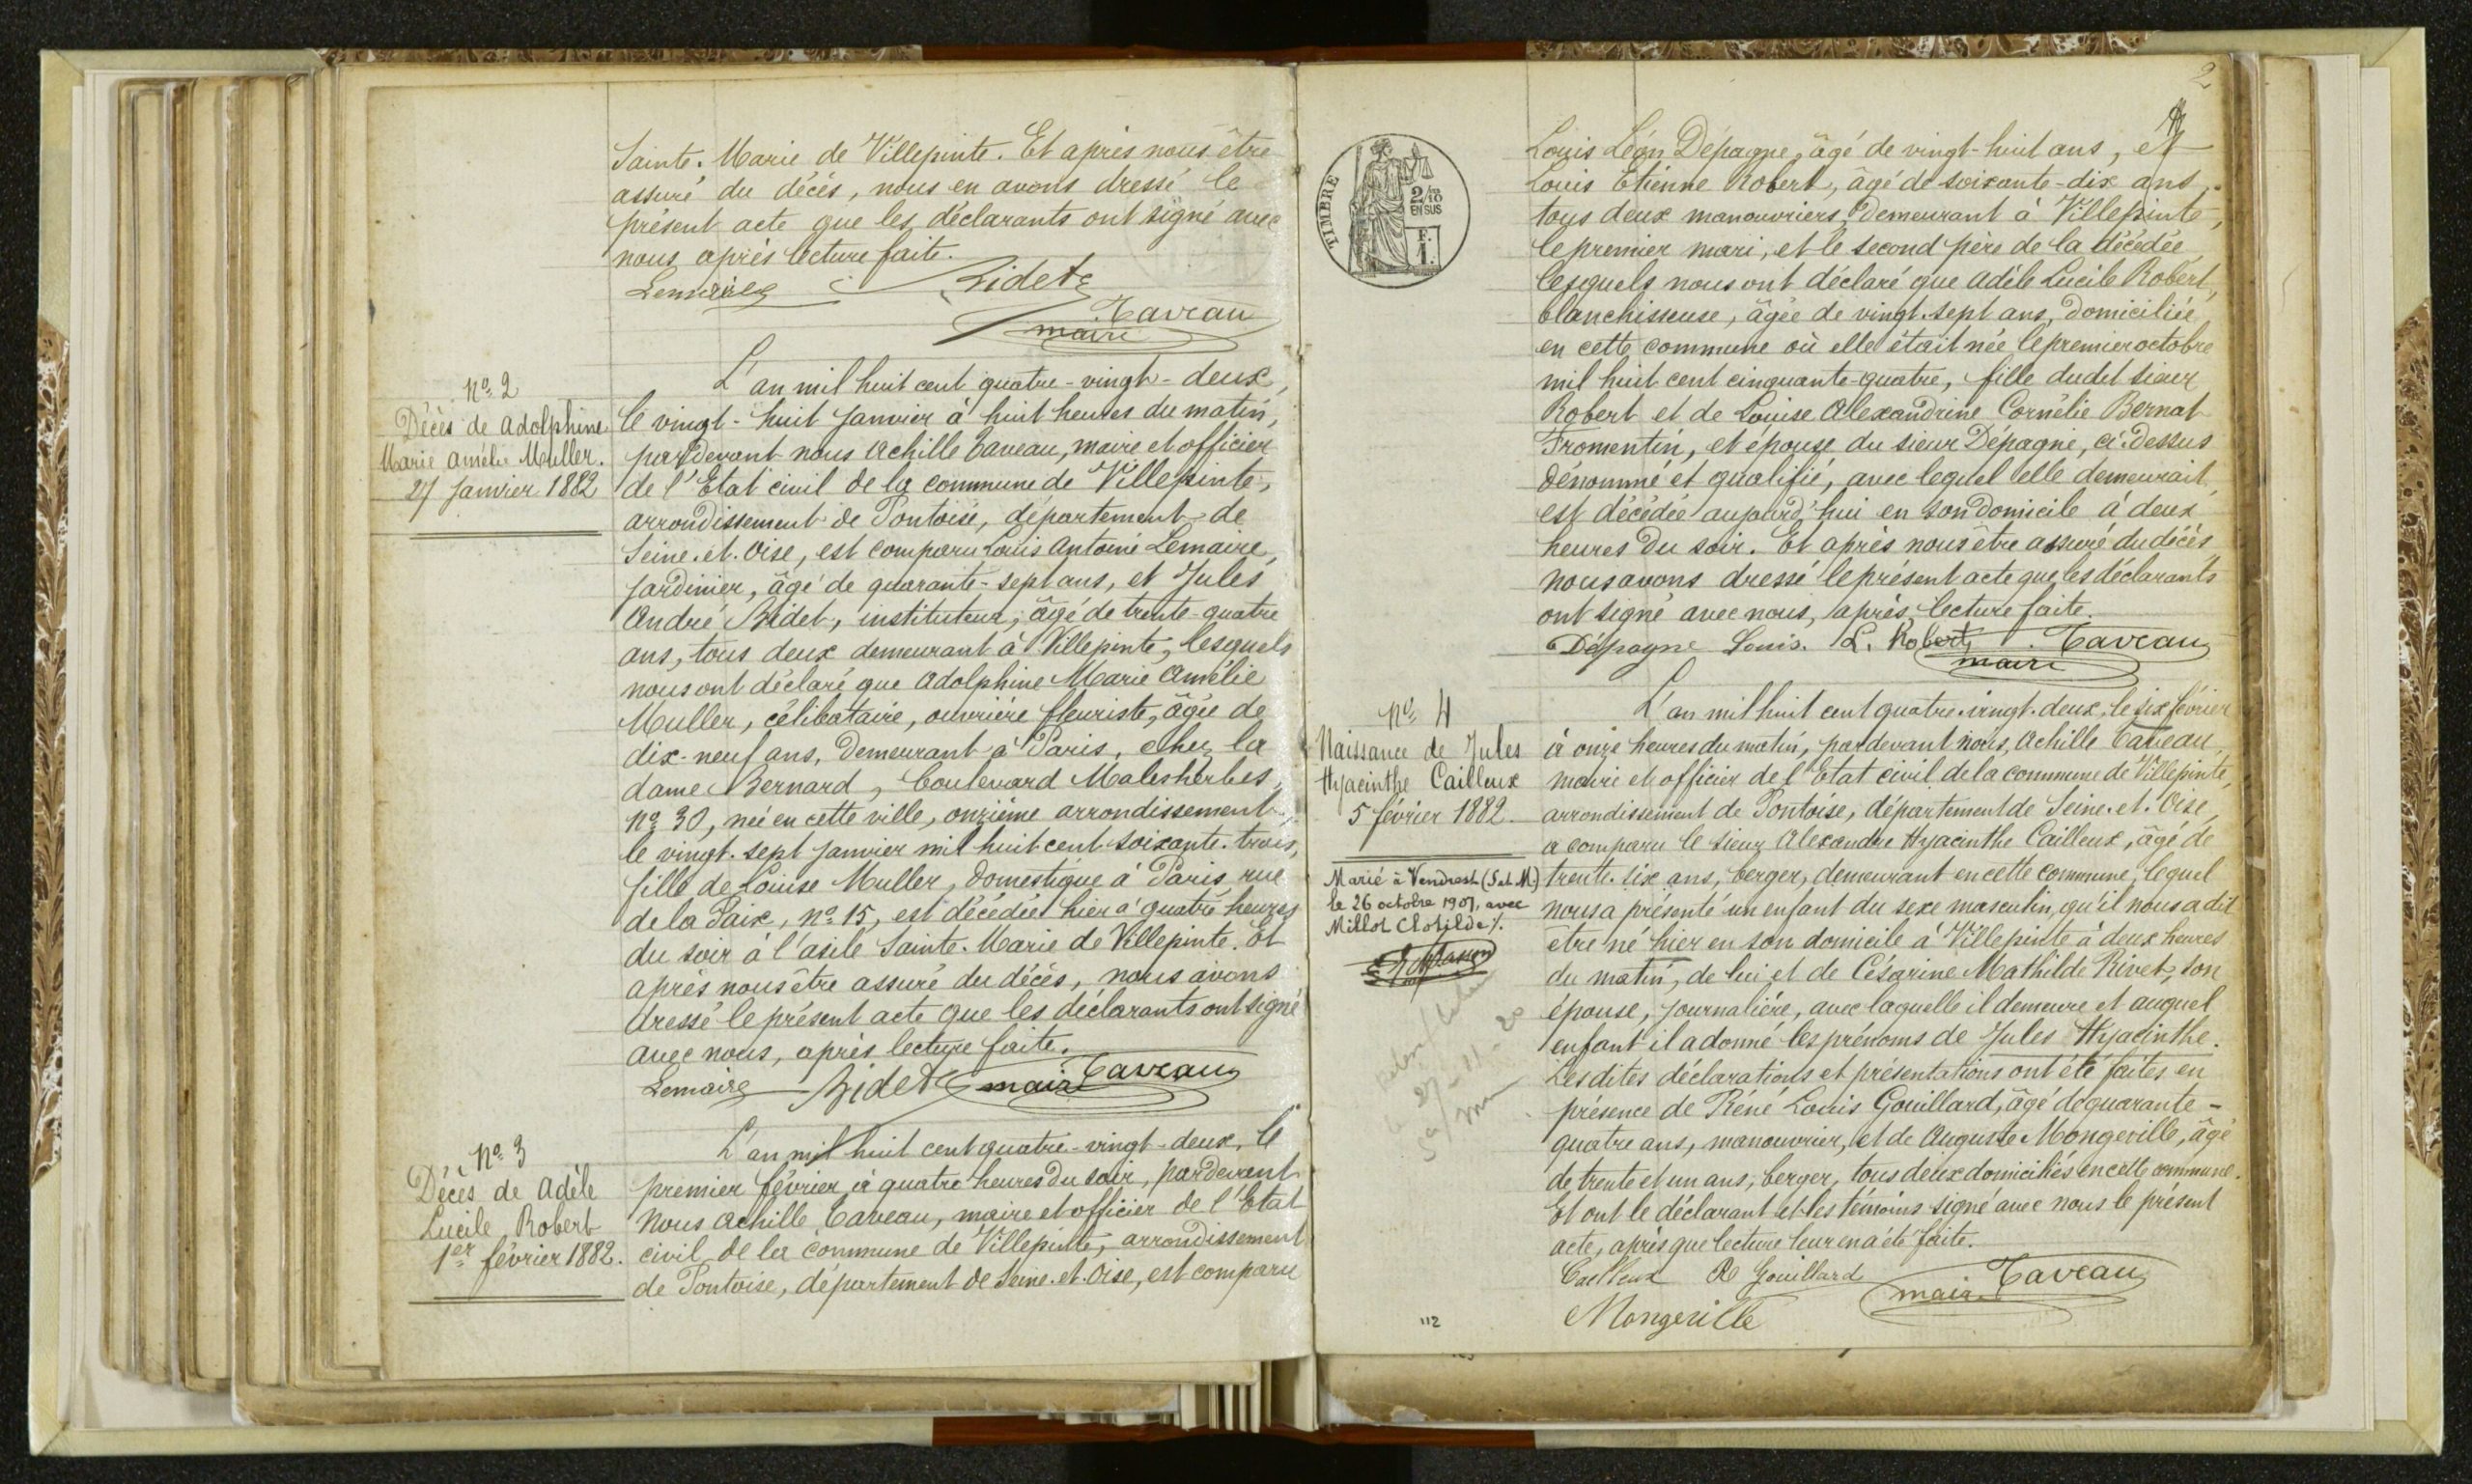 Sainte-Marie de Villepinte. Et après nous être
assuré du décès, nous en avons dressé le
présent acte que les déclarants ont signé avec
nous après lecture faite.
Lemaire Bidet
Taveau
maire
N° 2
Décès de Adolphine
Marie Amélie Muller.
27 Janvier 1882
L'an mil huit cent quatre-vingt-deux,
le vingt-huit Janvier à huit heures du matin,
pardevant nous Achille Taveau, maire et officier
de l'Etat civil de la commune de Villepinte,
arrondissement de Pontoise, département de
Seine-et-Oise, est comparu Louis Antoine Lemaire,
Jardinier, âgé de quarante-sept ans, et Jules
André Bidet, instituteur, âgé de trente-quatre
ans, tous deux demeurant à Villepinte, lesquels
nous ont déclaré que Adolphine Marie Amélie
Muller, célibataire, ouvrière fleuriste, âgée de
dix-neuf ans, demeurant à Paris, chez la
dame Bernard, boulevard Malesherbes,
N° 30, née en cette ville, onzième arrondissement,
le vingt-sept Janvier mil huit cent soixante-trois,
fille de Louise Muller, domestique à Paris, rue
de la Paix, n° 15, est décédée hier à quatre heures
du soir à l'asile Sainte-Marie de Villepinte. Et
après nous être assuré du décès, nous avons
dressé le présent acte que les déclarants ont signé
avec nous, après lecture faite.
Lemaire Bidet maire Taveau
N° 3
Décès de Adèle
Lucile Robert
1er février 1882.
L'an mil huit cent quatre-vingt-deux, le
premier février à quatre heures du soir, pardevant
Nous Achille Taveau, maire et officier de l'Etat
civil de la commune de Villepinte, arrondissement
de Pontoise, département de Seine-et-Oise, est comparu
2
TIMBRE
2/10
EN SUS
F.
1.
Louis Léon Dépagne, âgé de vingt-huit ans, et
Louis Etienne Robert, âgé de soixante-dix ans,
tous deux manouvriers, demeurant à Villepinte,
le premier mari, et le second père de la décédée
lesquels nous ont déclaré que Adèle Lucile Robert,
blanchisseuse, âgée de vingt-sept ans, domiciliée
en cette commune où elle était née le premier octobre
mil huit cent cinquante-quatre, fille dudit sieur
Robert et de Louise Alexandrine Cornélie Bernat
Fromentin, et épouse du sieur Dépagne, ci-dessus
dénommé et qualifié, avec lequel elle demeurait,
est décédée aujourd'hui en son domicile à deux
heures du soir. Et après nous être assuré du décès,
nous avons dressé le présent acte que les déclarants
ont signé avec nous, après lecture faite.
Dépagne Louis. L. Robert Taveau
maire
N° 4
Naissance de Jules
Hyacinthe Cailleux
5 février 1882.
Marié à Vendrest (S.et.M.)
le 26 octobre 1907, avec
Millot Clotilde ./.
27-11-20
L'an mil huit cent quatre-vingt-deux, le six février
à onze heures du matin, pardevant nous, Achille Taveau,
maire et officier de l'Etat civil de la commune de Villepinte,
arrondissement de Pontoise, département de Seine-et-Oise,
a comparu le sieur Alexandre Hyacinthe Cailleux, âgé de
trente-six ans, berger, demeurant en cette commune, lequel
nous a présenté un enfant du sexe masculin, qu'il nous a dit
être né hier en son domicile à Villepinte à deux heures
du matin, de lui et de Césarine Mathilde Rivet, son
épouse, journalière, avec laquelle il demeure et auquel
enfant il a donné les prénoms de Jules Hyacinthe.
Lesdites déclarations et présentations ont été faites en
présence de Réné Louis Gouillard, âgé de quarante-
quatre ans, manouvrier, et de Auguste Mongeville, âgé
de trente et un ans, berger, tous deux domiciliés en cette commune.
Et ont le déclarant et les témoins signé avec nous le présent
acte, après que lecture leur en a été faite.
Cailleux R Gouillard Taveau
maire
Mongeville
112